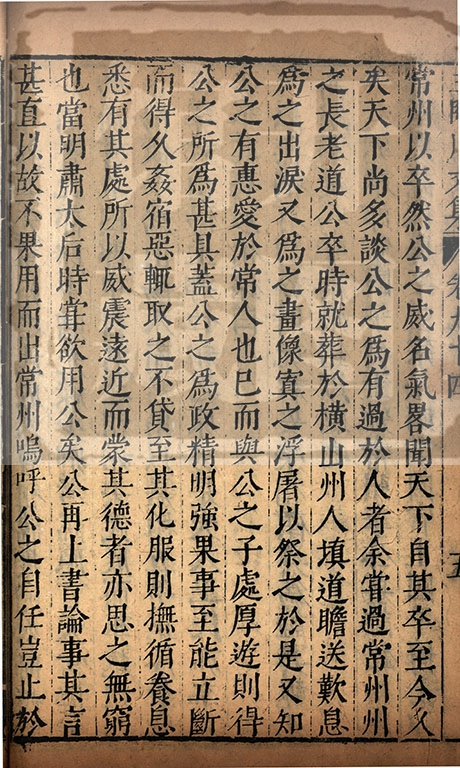 常州以卒然公之威名氣畧聞天下自其卒至今久
矣天下尚多談公之爲有過於人者余甞過常州州
之長老道公卒時就葬於橫山州人填道瞻送歎息
爲之出淚又爲之畫像寘之浮屠以祭之於是又知
公之有惠愛於常人也已而與公之子處厚遊則得
公之所爲甚具蓋公之爲政精明強果事至能立斷
而得久姦宿惡輒取之不貸至其化服則撫循養息
悉有其處所以威震遠近而蒙其德者亦思之無窮
也當明肅太后時甞欲用公矣公再上書論事其言
甚直以故不果用而出常州嗚呼公之自任豈止於